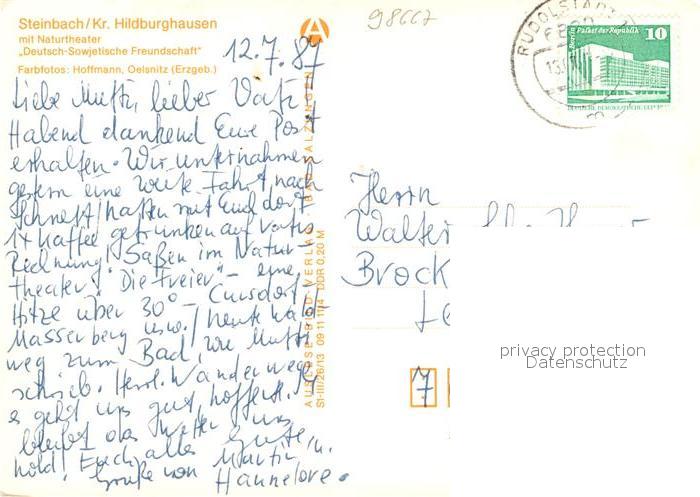 Steinbach/Kr. Hildburghausen
mit Naturtheater
„Deutsch-Sowjetische Freundschaft"
Farbfotos: Hoffmann, Oelsnitz (Erzgeb.)
98667
12.7.87
Liebe Mutti, lieber Vati
Habend dankend Eure Post
erhalten. Wir unternahmen
gestern eine weite Fahrt nach
Schnett, hatten mit Euch dort
1x Kaffee getrunken auf
Rechnung! Saßen im Natur-
theater! "Die Freier" – eine
Hitze über 30° –
Massenberg usw. / heute
weg zum Bad, wie Mutti
schrieb. Herrl. Wanderwege
es geht uns gut, hoffentl.
bleibt das Wetter uns
hold! Euch alles Gute, u.
Grüße von Martin u.
Hannelore.
AUSLESE-BILD-VERLAG
St-III/26/13 09 11 11 14 DDR 0,20 M
RUDOLSTADT
Berlin Palast der Republik
10
DEUTSCHE DEMOKRATISCHE REPUBLIK
Herrn
Walter
Brock
7
privacy protection
Datenschutz